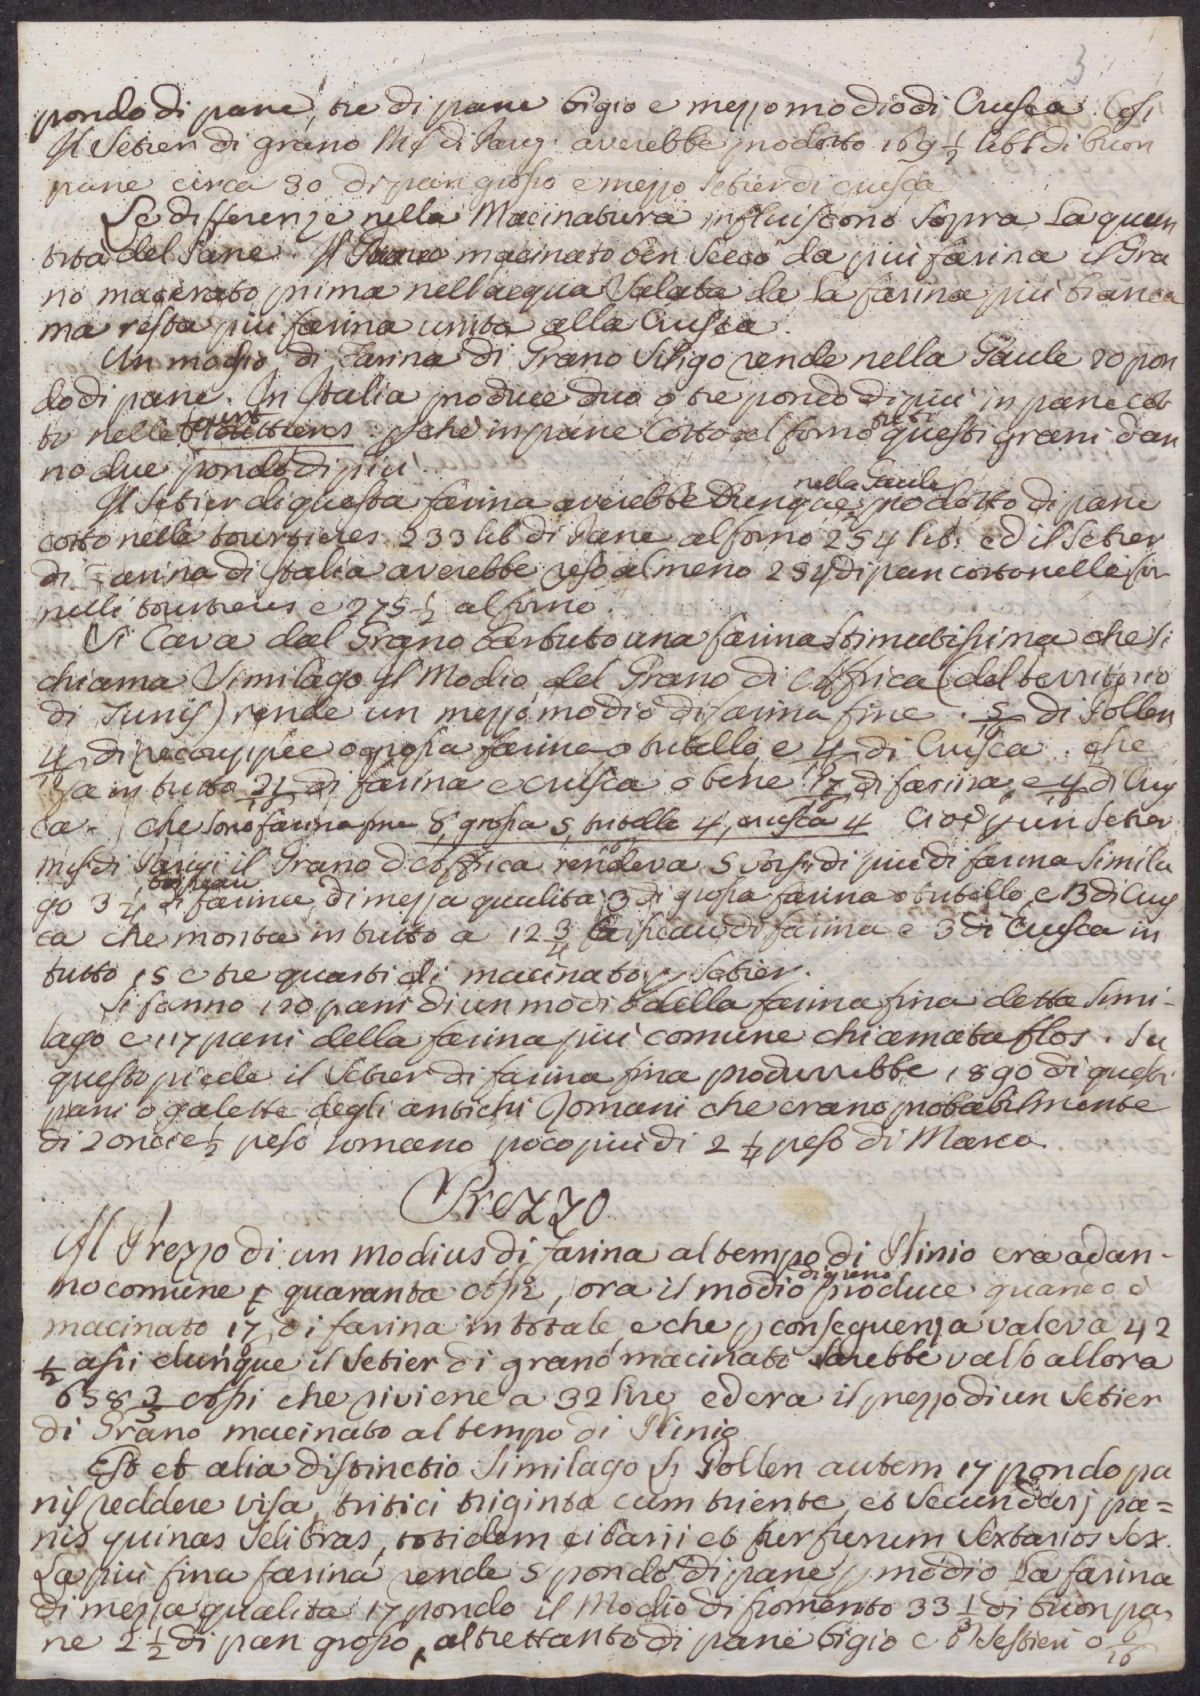 3
pondo di pane, tre di pane bigio e mezzo modio di Crusca. Cosi
Il Setier di grano Mis. di Parigi averebbe prodotto 169 1/2 lib. di buon
pane circa 30 di pan grosso e mezzo Setier di crusca
Le differenze nella Macinatura influiscono sopra La quan
tita del Pane. Il Grano macinato ben Secco da piu farina il Gra
no macerato prima nell acqua Salata da La farina piu bianca
ma resta piu farina unita alla Crusca.
Un modio di Farina di Grano Siligo rende nella Gaule 20 pon
do di pane. In Italia produce due o tre pondo di piu in pane cot
to nelle tourtieres. che in pane Cotto al forno questi grani dan
no due pondo di piu.
Il Setier di questa farina averebbe Dunque nella Gaule prodotto di pane
cotto nelle tourtieres 233 lib di Pane al forno 254 lib. ed il Setier
di Farina di Italia averebbe reso almeno 254 di pan cotto nelle
tourtieres e 275 1/2 al forno.
Si Cava dal Grano battuto una farina stimatissima che si
chiama Similago Il Modio del Grano di Affrica (del territorio
di Tunis) rende un mezzo modio di farina fine. 5/16 di Pollen
4/16 di recouppée o grossa farina o tritello e 4/16 di Crusca. che
fa in tutto 21/16 di farina e crusca o bene 17/16 di farina e 4/16 di Crus
ca. che sono farina fine 8, grossa 5, tritello 4, crusca 4 Cioè p un Setier
mis. di Parigi il Grano d'Affrica rendeva di piu di farina Simila
go 3 3/4 boisseau di farina di mezza qualita 3 di grossa farina o tritello e 3 di Crus
ca che monta in tutto a 12 3/4 boisseau di farina e 3 di Crusca in
tutto 15 e tre quarti di macinato p Setier.
Si fanno 120 pani di un modio della farina fina detta Simi-
lago e 117 pani della farina piu comune chiamata flos. Su
questo piede il Setier di farina fina produrrebbe 1890 di questi
pani o galette degli antichi Romani che erano probabilmente
di 2 oncie 1/2 peso romano poco piu di 2 1/4 peso di Marco
Prezzo
Il Prezzo di un modius di farina al tempo di Plinio era ad an-
no comune quaranta assi, ora il modio di grano produce quando è
macinato 17/16 di farina in totale e che p consequenza valeva 42
1/2 assi dunque il Setier di grano macinato sarebbe valso allora
658 3/5 assi che riviene a 32 lire ed era il prezzo di un Setier
di Grano macinato al tempo di Plinio
Est et alia distinctio Similago Pollen autem 17 pondo pa
nis reddere visa, tritici triginta cum triente, et Secundarj pa=
nis quinas Selibras, totidem cibarii et furfurum Sextarios Sex.
La piu fina farina rende 5 pondo di pane p modio La farina
di mezza qualita 17 pondo il Modio di fromento 33 1/3 di buon pa
ne 2 1/2 di pan grosso, altrettanto di pane bigio e 6 Sestieri o 6/16